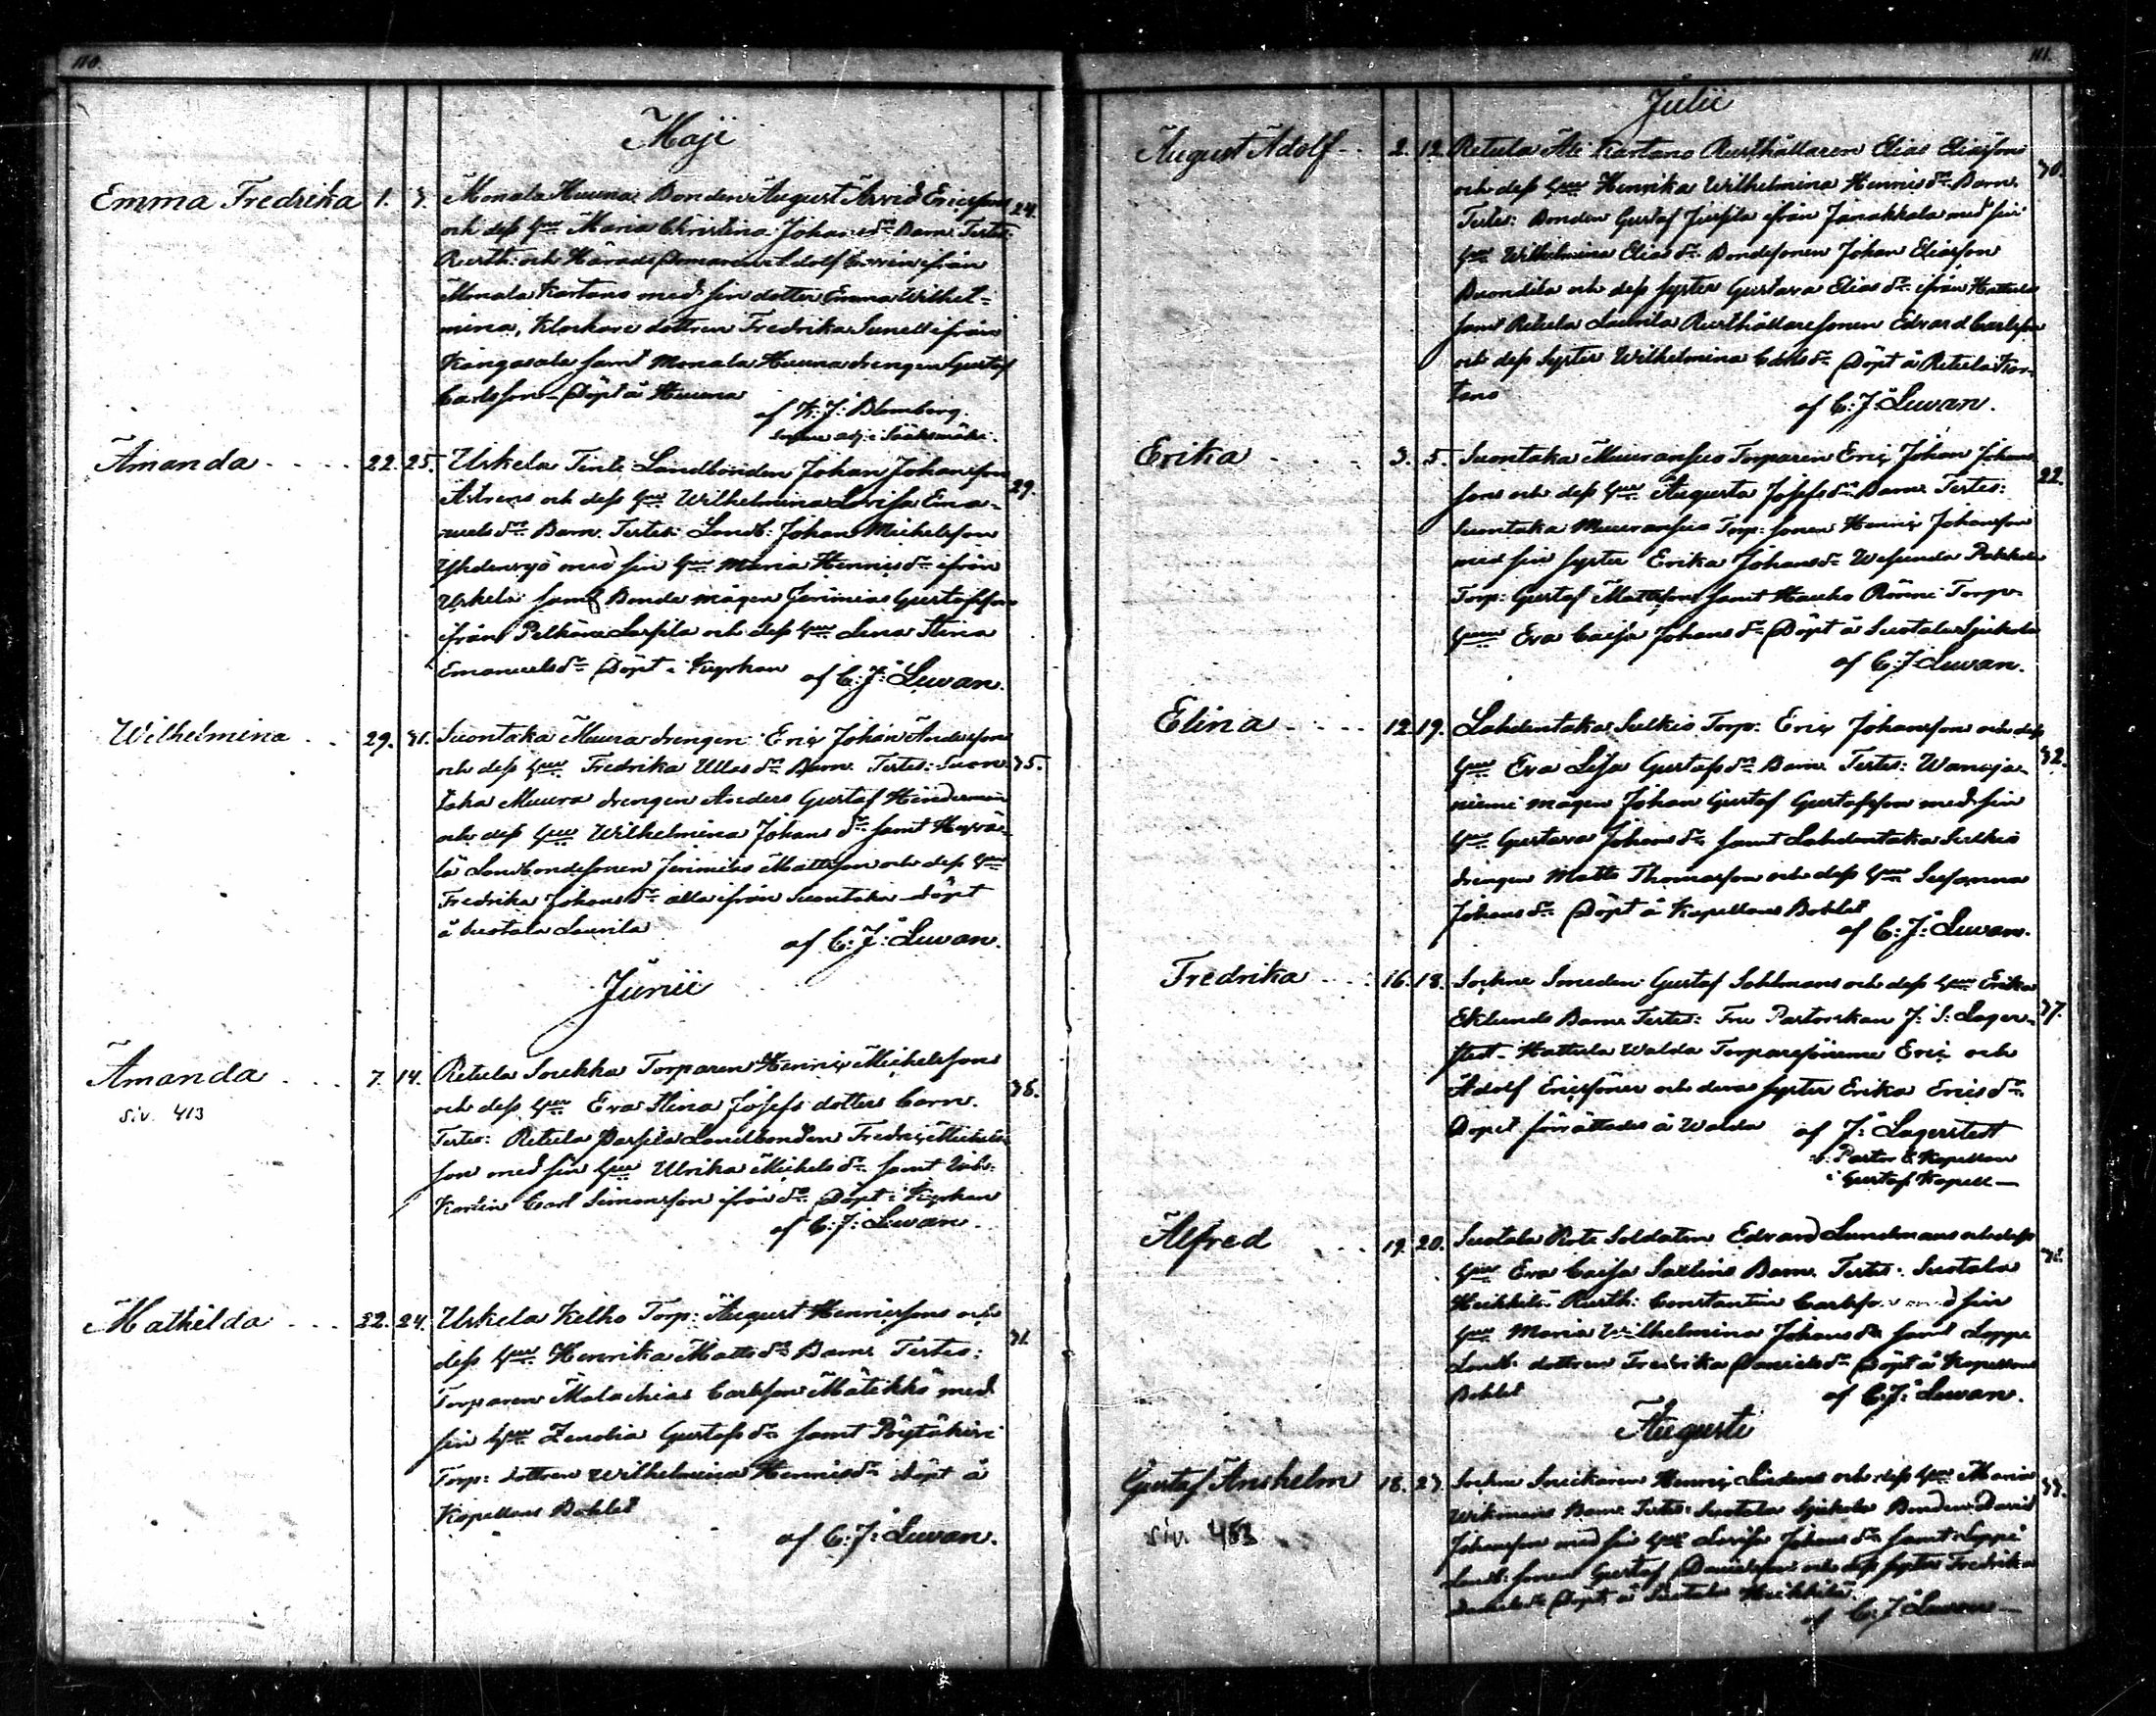 110.
Maji
Emma Fredrika 1. 3. Monala Huuna Bonden August Arvid Ericssons 24.
och dess hu Maria Christina Johans dr Barn. Testes:
Rusth: och Härads Domaren Adolf ifrån
Monala Kartano med sin dotter Emma Wilhel-
mina, Klockare dottren Fredrika Sunell ifrån
Kangasala samt Monala Huuna drengen Gustaf
Carlsson. Döpt å Huuna
af K: J: Blomberg.
adj: i Sääksmäki.
Amanda 22. 25. Uskela Tinti Landbonden Johan Johansson 29.
Astrens och dess hu Wilhelmina Lovisa Ema-
nuels dr Barn. Testes: Landb: Johan Michelsson
med sin hu Maria Henrics dr ifrån
Uskela samt Bonde mågen Jerimias Gustafsson
ifrån Pelkäne Laspila och dess hu Lena Stina
Emanuels dr Döpt i Kyrkan
af C: J: Lewan.
Wilhelmina 29. 31. Suontaka Muura drengen Eric Johan Andersons 35.
och dess hu Fredrika Ullas dr Barn. Testes: Suon-
taka Muura drengen Anders Gustaf Hinderman
och dess hu Wilhelmina Johans dr samt
lä Landbondesonen Jerimias Mattsson och dess hu
Fredrika Johans dr alla ifrån Suontaka döpt
å Suotala Laurila
af C: J: Lewan.
Junii
Amanda 7. 14. Retula Torparen Henric Michelssons 36.
Siv. 413
och dess hu Eva Stina Josefs dotters barn.
Testes: Retula Parsila Landbonden Fredric Michels-
son med sin hu Ulrika Michels dr samt
Karlin Carl Simonsson ifrån do Döpt i Kyrkan
af C: J: Lewan.
Mathilda 22. 24. Uskela Kelho Torp: August Henricssons och 31.
dess hu Henrika Matts dr Barn Testes:
Torparen Malachias Carlsson Mätikkö med
sin hu Zenobia Gustafs dr samt Pöytäkivi
Torp: dottren Wilhelmina Henrics dr döpt å
Kapellans Bohlet
af C: J: Lewan.
111.
Julii
August Adolf 2. 12. Retula Ali Kartano Rusthållaren Elias Eliasson 30.
och dess hu Henrika Wilhelmina Henrics dr Barn.
Testes: Bonden Gustaf Jussila ifrån Janakkala med sin
hu Wilhelmina Elias dr Bondesonen Johan Eliasson
och dess syster Gustava Elias dr ifrån Hattula
samt Retula Laurila Rusthållaresonen Edvard Carlsson
och dess Syster Wilhelmina Carls dr Döpt å Retula Kar-
tano
af C: J: Lewan.
Erika 3. 5. Suontaka Muuransuo Torparen Eric Johan Johans- 22.
sons och dess hu Augusta Josefs dr Barn Testes:
Suontaka Muuransuo Torp: sonen Henric Johansson
med sin syster Erika Johans dr Wesunda Pakkala
Torp: Gustaf Mattsson samt Hauho Rönni Torp-
hu Eva Caisa Johans dr Döpt å Suotala Sjukola
af C: J: Lewan.
Elina 12. 19. Lahdentaka Sulkio Torp: Eric Johansson och dess 32.
hu Eva Lisa Gustafs dr Barn Testes: Wanaja-
niemi mågen Johan Gustaf Gustafsson med sin
hu Gustava Johans dr samt Lahdentaka Sulkio
drengen Matts Thomasson och dess hu Susanna
Johans dr Döpt å Kapellans Bohlet
af C: J: Lewan.
Fredrika 16. 18. Sockne Smeden Gustaf Sahlmans och dess hu Erika 37.
Eklunds Barn Testes: Fru Pastorskan J: S: Lager-
stedt Hattula Walda Torparesönerne Eric och
Adolf Ericssöner och deras syster Erika Erics dr
Dopet förrättades å Walda
af J: Lagerstedt
v. Pastor & Kapellan
i Gustafs Kapell
Alfred 19. 20. Suotala Rote Soldaten Edvard Lundmans och dess
hu Eva Caisa Saxlins Barn. Testes: Suotala
Heikkilä Rusth: Constantin Carlsson med sin
hu Maria Wilhelmina Johans dr samt Loppi
Landb: dottren Fredrika Daniels dr Döpt å Kapellans
Bohlet
af C: J: Lewan.
Augusti
Gustaf Anshelm 18. 23. Sockne Snickaren Henric Lindens och dess hu Maria 33.
siv. 483
Wikmans Barn Testes: Suotala Sjukola Bonden David
Johansson med sin hu Lovisa Johans dr samt Loppi
Landb: sonen Gustaf Danielsson och dess syster Fredrika
Daniels dr Döpt å Suotala Heikkilä
af C: J: Lewan